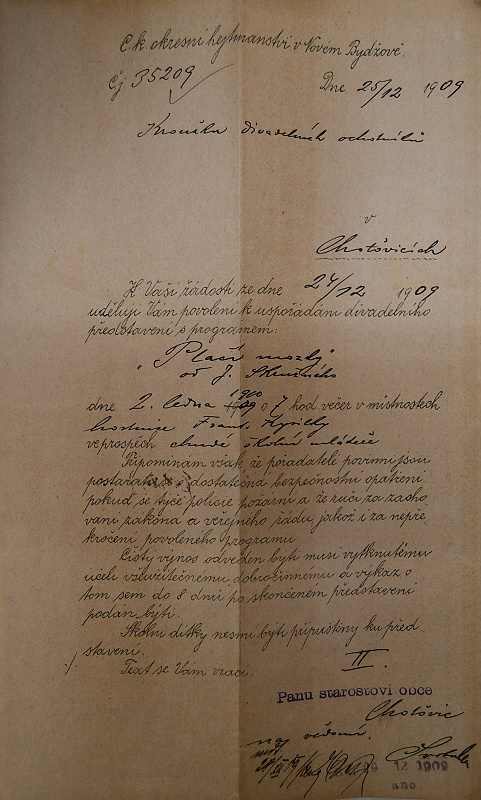 C.k. okresní hejtmanství v Novém Bydžově.
Čj. 35209
Dne 25/12 1909
Kroužku divadelních ochotníků
v
Chotěvicích
K Vaší žádosti ze dne 24/12 1909
uděluji Vám povolení k uspořádání divadelního
představení s programem:
"Plači mzdy"
od J.
1910
dne 2. ledna 1909 o 7 hod. večer v místnostech
hostince Frant.
ve prospěch chudé školní mládeže
Připomínám však, že pořadatelé povinni jsou
postarati se o dostatečná bezpečnostní opatření
pokud se týče policie požární a že ručí za zacho
vání zákona a veřejného řádu, jakož i za nepře
kročení povoleného programu
Čistý výnos odveden býti musí vytknutému
účeli všeužitečnému, dobročinnému a výkaz o
tom sem do 8 dnů po skončeném představení
podán býti.
Školní dítky nesmí býti připuštěny ku před
stavení.
./. Text se Vám vrací.
II.
Panu starostovi obce
na vědomí.
1909
ano